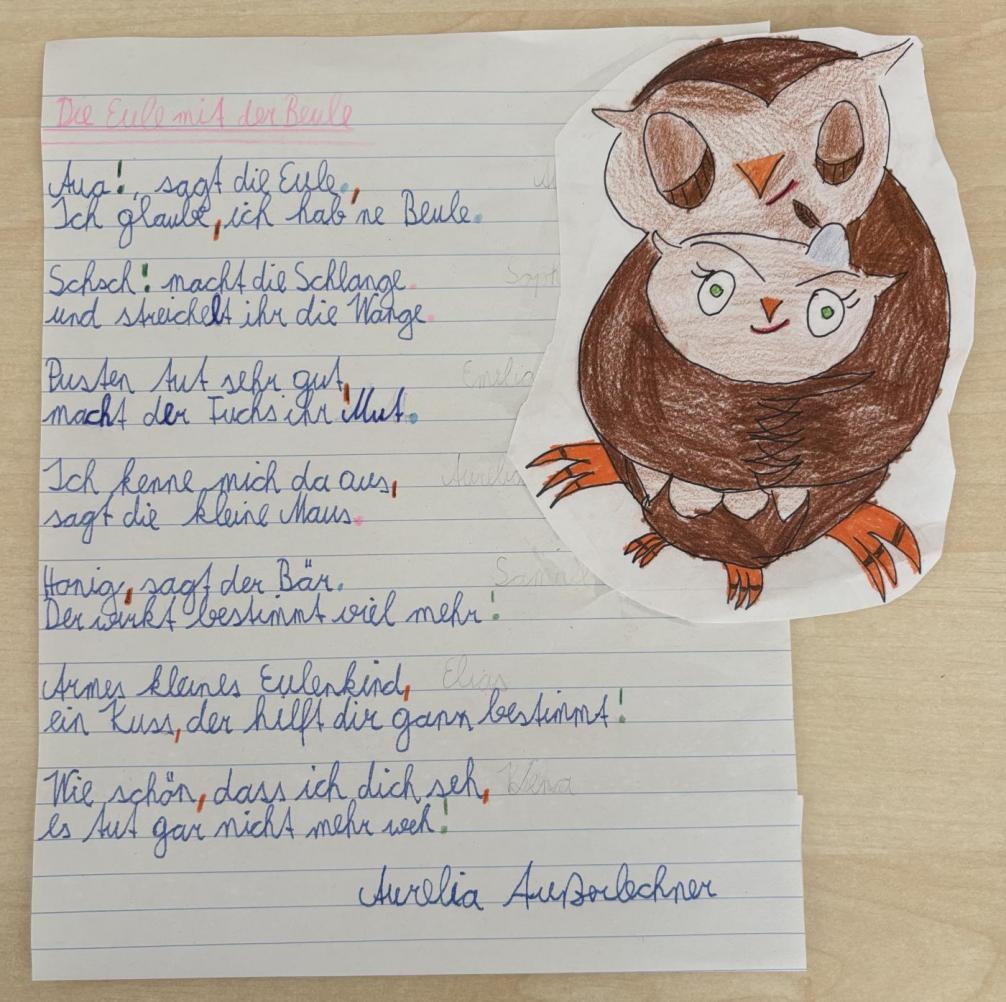 Die Eule mit der Beule
Aua!, sagt die Eule.,
Ich glaube, ich hab'ne Beule.
Schsch! macht die Schlange.
und streichelt ihr die Wange.
Pusten tut sehr gut,
Emilia
macht der Fuchs ihr Mut.
Ich kenne mich da aus,
Aurelia
sagt die kleine Maus.
Honig, sagt der Bär.
Der wirkt bestimmt viel mehr!
Armes kleines Eulenkind,
Elias
ein Kuss, der hilft dir gann bestimmt!
Wie schön, dass ich dich seh,
es tut gar nicht mehr weh!
Aurelia Außerlechner